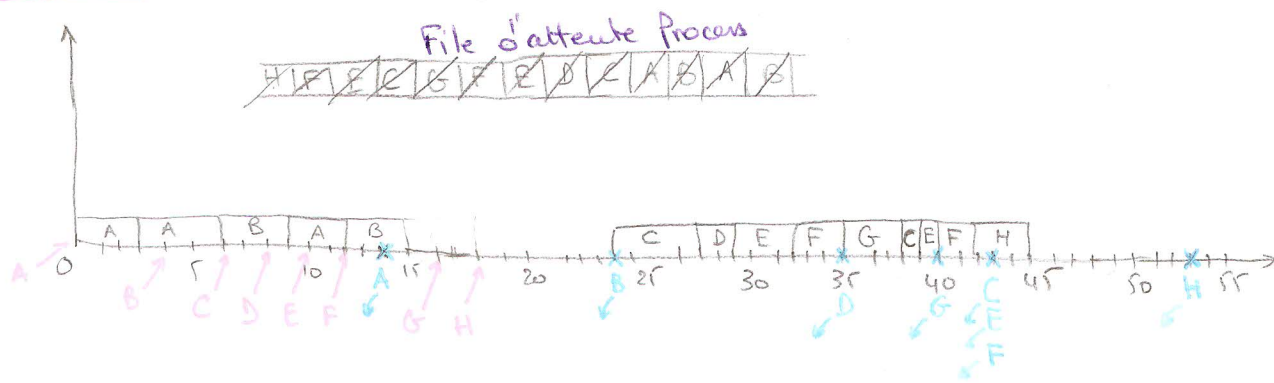 File d'attente Process
H F E C G F E D C A B A B
A A B A B C D E F G C E F H
0 5 10 15 20 25 30 35 40 45 50 55
A B C D E F A G H B D G C H
E
F